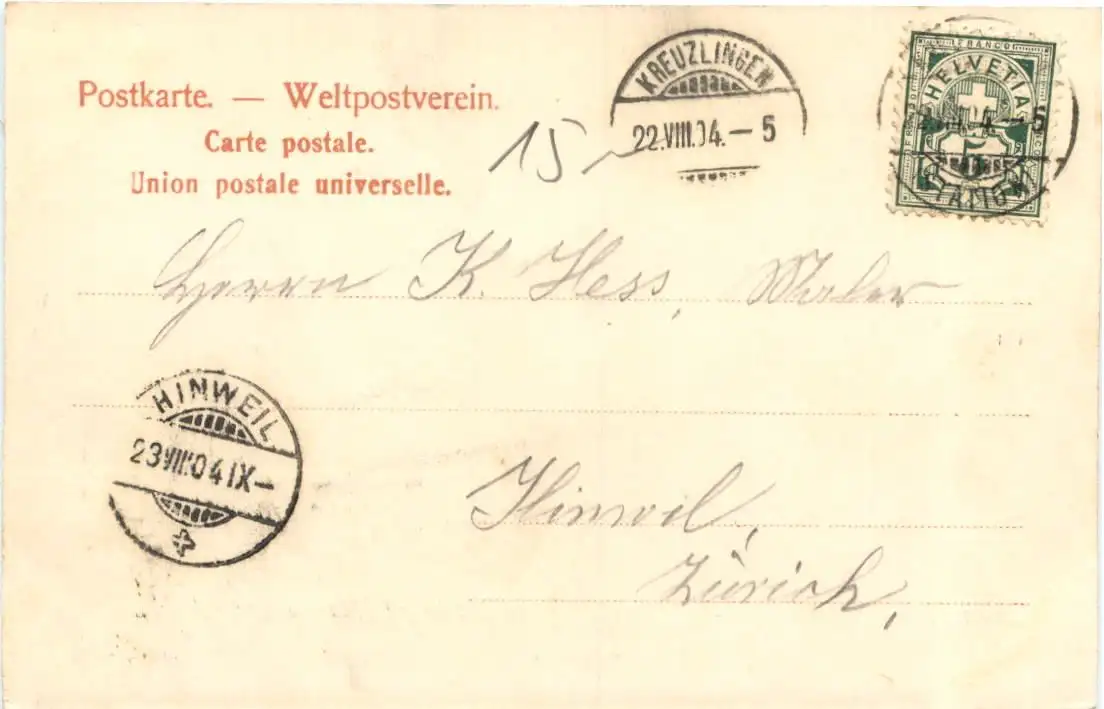 Postkarte. — Weltpostverein.
Carte postale.
Union postale universelle.
15
KREUZLINGEN
22.VIII.04.–5
FRANCO
HELVETIA
5
Herrn K. Hess, Maler
HINWEIL
23.VIII.04 IX–
Hinwil,
Zürich,